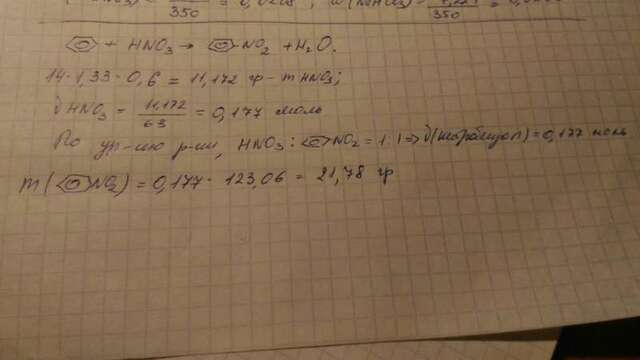 350 = 0,0208 ; 350
+ HNO₃ → NO₂ + H₂O.
14 · 1,33 · 0,6 = 11,172 гр - m HNO₃;
ϑ HNO₃ = 11,172 / 63 = 0,177 моль
По ур-ию р-ии, HNO₃ : NO₂ = 1:1 => ϑ(нитробензол) = 0,177 моль
m( NO₂) = 0,177 · 123,06 = 21,78 гр